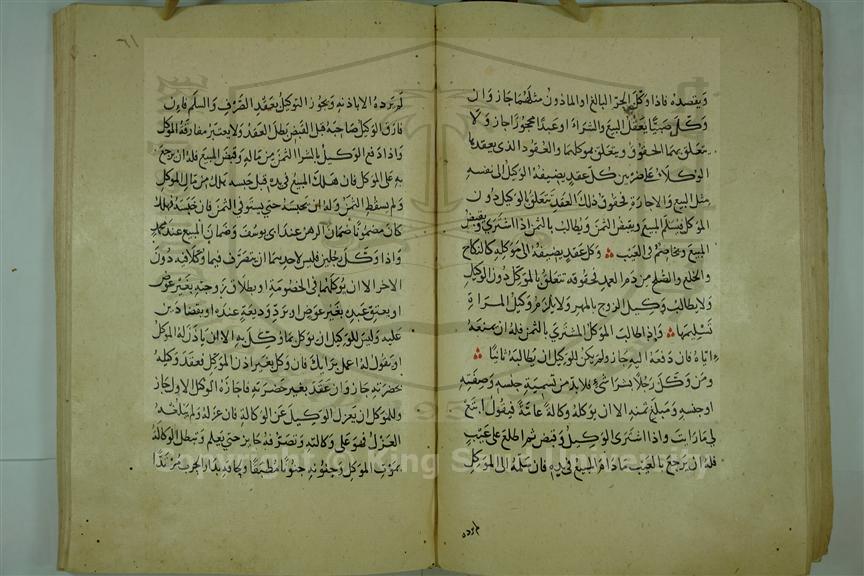 ويقصده فاذا وكل الحر البالغ او الماذون مثلهما جاز وان
وكل صبيا يعقل البيع والشراء او عبدا محجورا جاز ولا
يتعلق بهما الحقوق ويتعلق بموكلهما والعقود الذى يعقدها
الوكلاء على ضربين كل عقد يضيفه الوكيل الى نفسه
مثل البيع والاجارة فحقوق ذلك العقد تتعلق بالوكيل دون
الموكل فيسلم المبيع ويقبض الثمن ويطالب بالثمن اذا اشترى ويقبض
المبيع ويخاصم فى العيب وكل عقد يضيفه الى موكله كالنكاح
والخلع والصلح من دم العمد فحقوقه تتعلق بالموكل دون الوكيل
ولا يطالب وكيل الزوج بالمهر ولا يلزم وكيل المراة
تسليمها واذا طالب الموكل المشترى بالثمن فله ان يمنعه
اياه فان دفعه اليه جاز ولم يكن للوكيل ان يطالبه ثانيا
ومن وكل رجلا بشراء شىء فلابد من تسمية جنسه وصفته
او جنسه ومبلغ ثمنه الا ان يوكله وكالة عامة فيقول ابتع
لى ما رايت واذا اشترى الوكيل وقبض ثم اطلع على عيب
فله ان يرجع بالعيب مادام المبيع فى يده فان سلمه الى الموكل
لم يرده
٦١
لم يرده الا باذنه ويجوز التوكيل بعقد الصرف والسلم فان
فارق الوكيل صاحبه قبل القبض بطل العقد ولا يعتبر مفارقة الموكل
واذا دفع الوكيل بالشراء الثمن من ماله وقبض المبيع فله ان يرجع
به على الموكل فان هلك المبيع فى يده قبل حبسه هلك من مال الموكل
ولم يسقط الثمن وله ان يحبسه حتى يستوفى الثمن فان حبسه فهلك
كان مضمونا ضمان الرهن عند ابى يوسف وضمان المبيع عند محمد
واذا وكل رجلين فليس لاحدهما ان يتصرف فيما وكلا فيه دون
الاخر الا ان يوكلهما فى الخصومة او بطلاق زوجته بغير عوض
او بعتق عبده بغير عوض او برد وديعة عنده او بقضاء دين
عليه وليس للوكيل ان يوكل بما وكل به الا ان ياذن له الموكل
او يقول له اعمل برايك فان وكل بغير اذن الموكل فعقد وكيله
بحضرته جاز وان عقد بغير حضرته فاجازه الوكيل الاول جاز
وللموكل ان يعزل الوكيل عن الوكالة فان عزله ولم يبلغه
العزل فهو على وكالته وتصرفه جايز حتى يعلم وتبطل الوكالة
بموت الموكل وجنونه جنونا مطبقا ولحاقه بدار الحرب مرتدا
Copyright © King Saud University